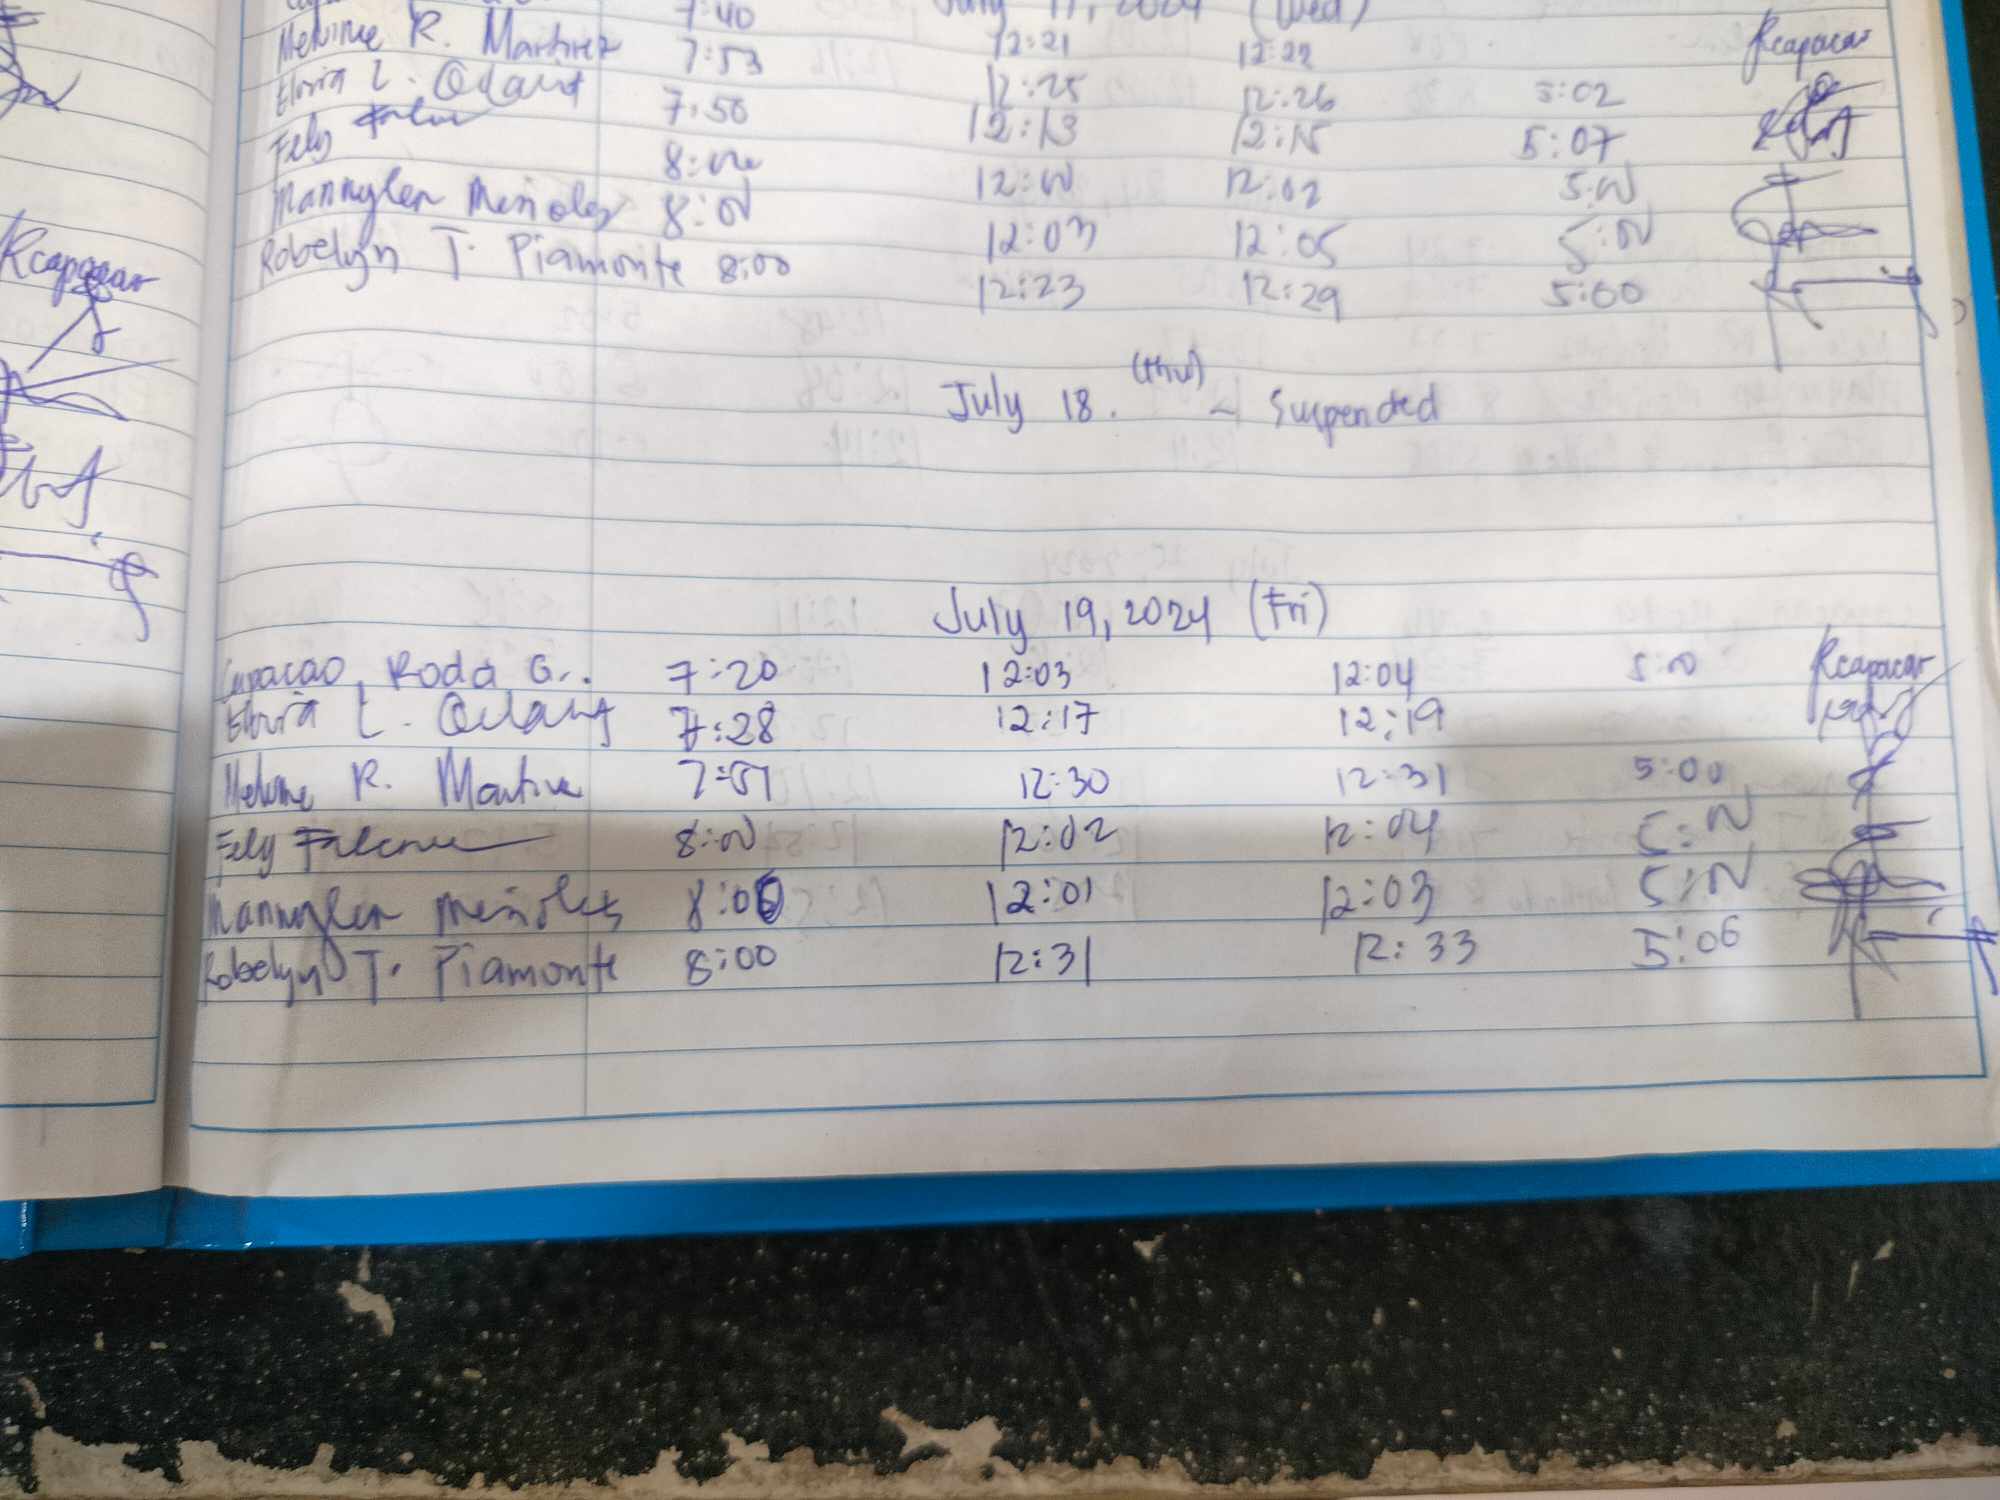 7:40 July 17, 2024 (Wed)
Melvinne R. Martinez 7:53 12:21 12:22 Rcapacao
Elvira L. 7:50 12:25 12:26 5:02
Fely 8:00 12:13 12:15 5:07
Mannylen Mesioles 8:00 12:00 12:02 5:00
Robelyn T. Piamonte 8:00 12:03 12:05 5:00
12:23 12:29 5:00
July 18. (thu) - Suspended
July 19, 2024 (Fri)
Capacao, Roda G.. 7:20 12:03 12:04 5:00 Rcapacao
Elvira L. 7:28 12:17 12:19
R. 7:51 12:30 12:31 5:00
Fely 8:00 12:02 12:04 5:00
Mannylen Mesioles 8:00 12:01 12:03 5:00
Robelyn T. Piamonte 8:00 12:31 12:33 5:06
Rcapacao